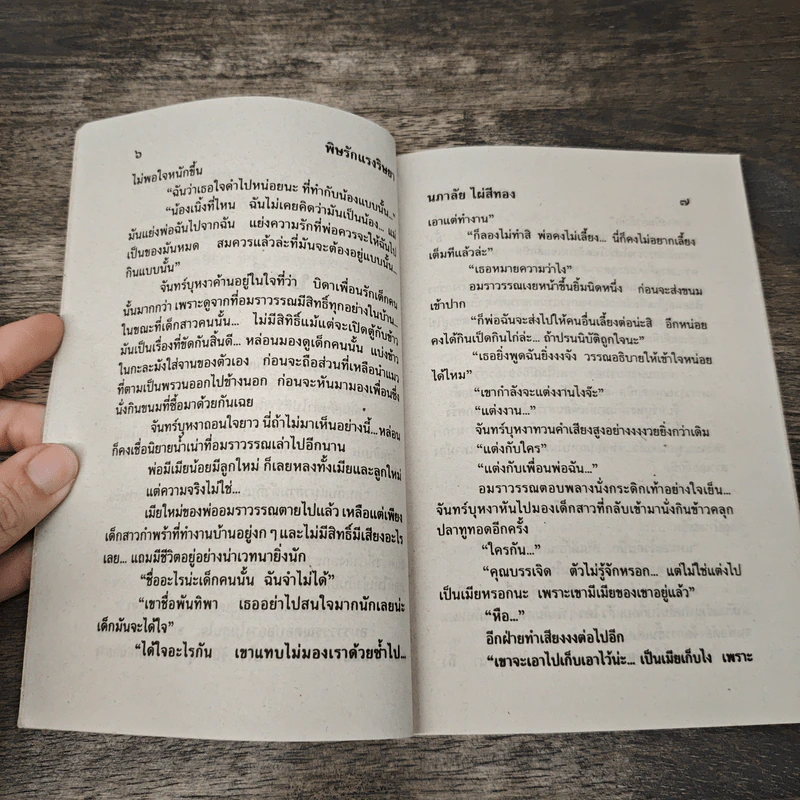 ๖
พิษรักแรงริษยา
ไม่พอใจหนักขึ้น
“ฉันว่าเธอใจดำไปหน่อยนะ ที่ทำกับน้องแบบนั้น...”
“น้องเนิ้งที่ไหน ฉันไม่เคยคิดว่ามันเป็นน้อง... แม่
มันแย่งพ่อฉันไปจากฉัน แย่งความรักที่พ่อควรจะให้ฉันไป
เป็นของมันหมด สมควรแล้วล่ะที่มันจะต้องอยู่แบบนั้น...
กินแบบนั้น”
จันทร์บุหงาค้านอยู่ในใจที่ว่า บิดาเพื่อนรักเด็กคน
นั้นมากกว่า เพราะดูจากที่อมราวรรณมีสิทธิ์ทุกอย่างในบ้าน...
ในขณะที่เด็กสาวคนนั้น... ไม่มีสิทธิ์แม้แต่จะเปิดตู้กับข้าว
มันเป็นเรื่องที่ขัดกันสิ้นดี... หล่อนมองดูเด็กคนนั้น แบ่งข้าว
ในกะละมังใส่จานของตัวเอง ก่อนจะถือส่วนที่เหลือนำแมว
ที่ตามเป็นพรวนออกไปข้างนอก ก่อนจะหันมามองเพื่อนซึ่ง
นั่งกินขนมที่ซื้อมาด้วยกันเฉย
จันทร์บุหงาถอนใจยาว นี่ถ้าไม่มาเห็นอย่างนี้...หล่อน
ก็คงเชื่อนิยายน้ำเน่าที่อมราวรรณเล่าไปอีกนาน
พ่อมีเมียน้อยมีลูกใหม่ ก็เลยหลงทั้งเมียและลูกใหม่
แต่ความจริงไม่ใช่...
เมียใหม่ของพ่ออมราวรรณตายไปแล้ว เหลือแต่เพียง
เด็กสาวกำพร้าที่ทำงานบ้านอยู่งก ๆ และไม่มีสิทธิ์มีเสียงอะไร
เลย... แถมมีชีวิตอยู่อย่างน่าเวทนายิ่งนัก
“ชื่ออะไรน่ะเด็กคนนั้น ฉันจำไม่ได้”
“เขาชื่อพันทิพา เธออย่าไปสนใจมากนักเลยน่ะ
เด็กมันจะได้ใจ”
“ได้ใจอะไรกัน เขาแทบไม่มองเราด้วยซ้ำไป...
นภาลัย ไผ่สีทอง
๗
เอาแต่ทำงาน”
“ก็ลองไม่ทำสิ พ่อคงไม่เลี้ยง... นี่ก็คงไม่อยากเลี้ยง
เต็มทีแล้วล่ะ”
“เธอหมายความว่าไง”
อมราวรรณเงยหน้าขึ้นยิ้มนิดหนึ่ง ก่อนจะส่งขนม
เข้าปาก
“ก็พ่อฉันจะส่งไปให้คนอื่นเลี้ยงต่อน่ะสิ อีกหน่อย
คงได้กินเป็ดกินไก่ล่ะ... ถ้าปรนนิบัติถูกใจนะ”
“เธอยิ่งพูดฉันยิ่งงงจัง วรรณอธิบายให้เข้าใจหน่อย
ได้ไหม”
“เขากำลังจะแต่งงานไงจ๊ะ”
“แต่งงาน...”
จันทร์บุหงาทวนคำเสียงสูงอย่างงงงวยยิ่งกว่าเดิม
“แต่งกับใคร”
“แต่งกับเพื่อนพ่อฉัน...”
อมราวรรณตอบพลางนั่งกระดิกเท้าอย่างใจเย็น...
จันทร์บุหงาหันไปมองเด็กสาวที่กลับเข้ามานั่งกินข้าวคลุก
ปลาทูทอดอีกครั้ง
“ใครกัน...”
“คุณบรรเจิด ตัวไม่รู้จักหรอก... แต่ไม่ใช่แต่งไป
เป็นเมียหรอกนะ เพราะเขามีเมียของเขาอยู่แล้ว”
“หือ...”
อีกฝ่ายทำเสียงงงต่อไปอีก
“เขาจะเอาไปเก็บเอาไว้น่ะ... เป็นเมียเก็บไง เพราะ